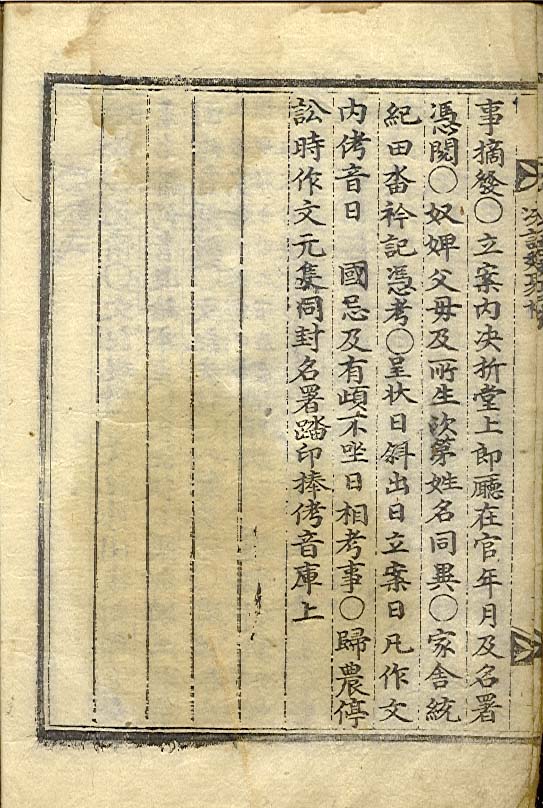 事摘發○立案內决折堂上郎廳在官年月及名署
憑閱○奴婢父毋及所生次第姓名同異○家舍統
紀田畓衿記憑考○呈狀日斜出日立案日凡作文
內侤音日 國忌及有頉不坐日相考事○歸農停
訟時作文元隻同封名署踏印捧侤音庫上